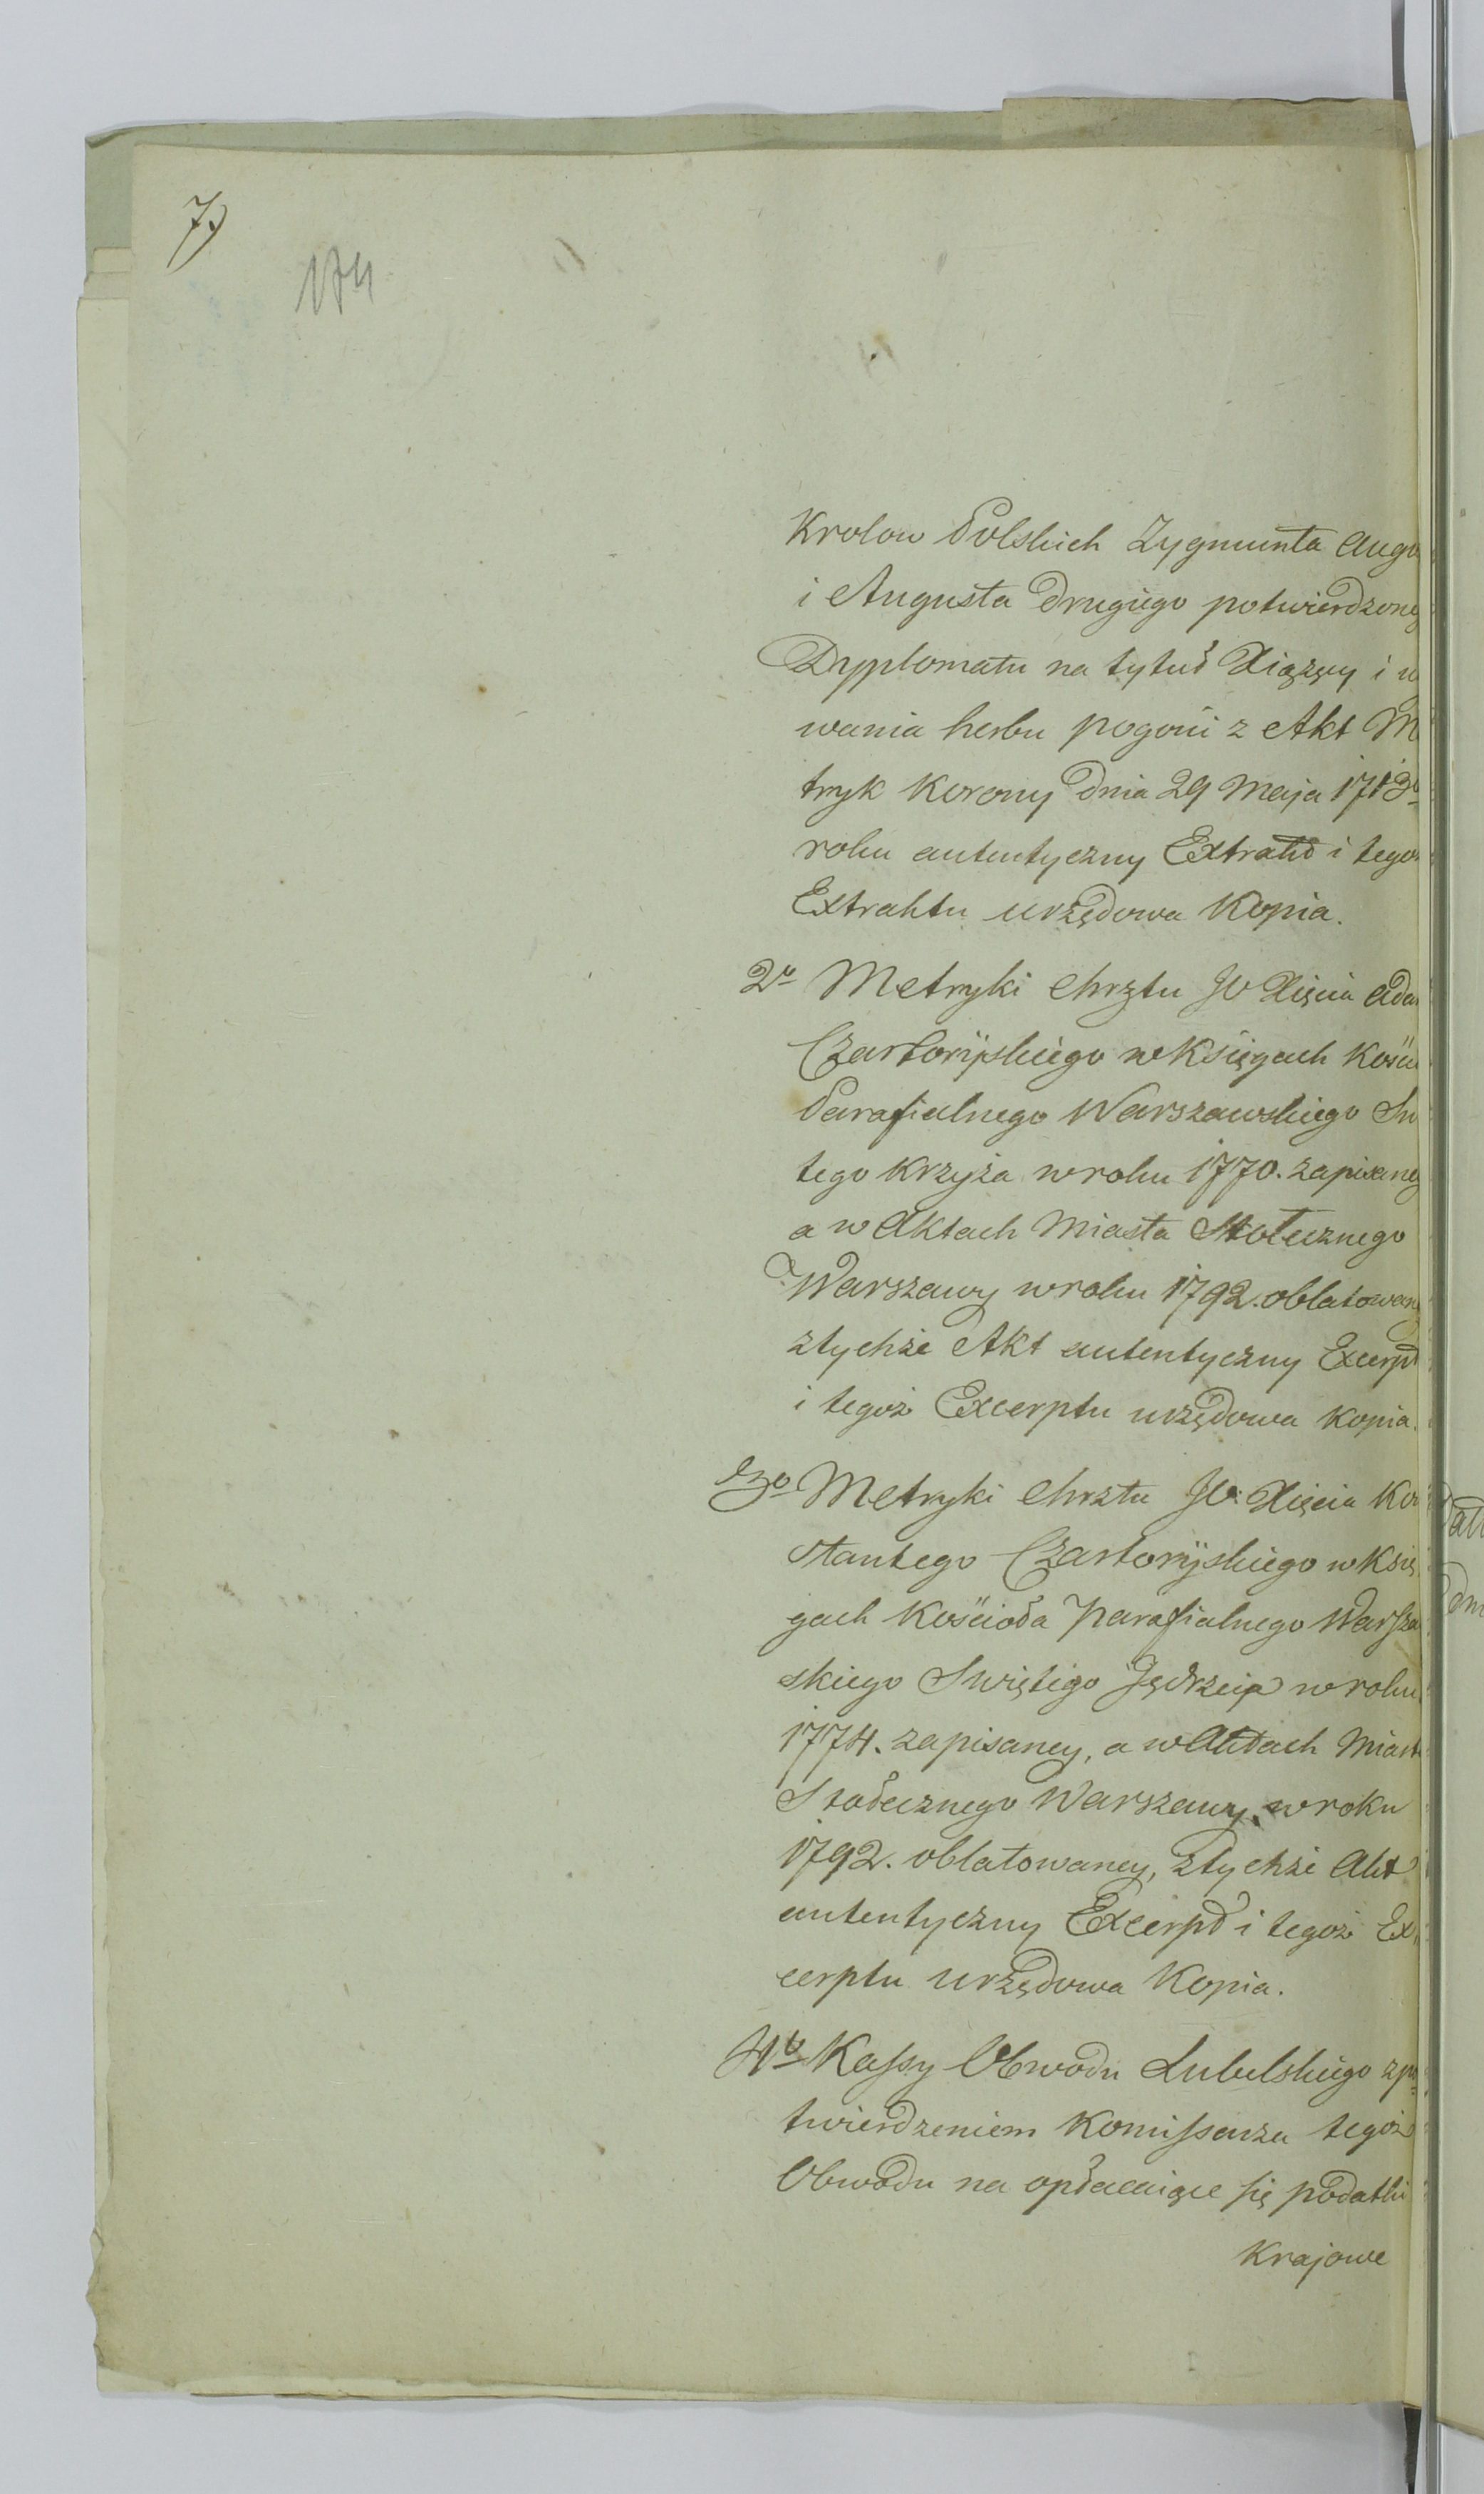 7.)
174
Krolow Polskich Zygmunta Augu
i Augusta Drugiego potwierdzoney
Dypplomatu na tytuł Xiążęcy i u
wania herbu pogoni z Akt Me
tryk Korony Dnia 29 Maja 1713º
roku autentyczny Extrakt i tegoż
Extraktu urzędowa Kopia.
2º Metryki Chrztu JO Xięcia Ada
Czartoryiskiego w Księgach Kości
Parafialnego Warszawskiego Sw
tego Krzyża w roku 1770. zapisaney
a w Aktach Miasta Stołecznego
Warszawy w roku 1792. oblatowaney
z tychże Akt autentyczny Excerpt
i tegoż Excerptu urzędowa Kopia.
3º Metryki Chrztu JO: Xięcia Kon
stantego Czartoryiskiego w Księ
gach Kościoła Parafialnego Warsza
skiego Swiętego Jędrzeia w roku
1774. zapisaney, a w Aktach Miasta
Stołecznego Warszawy, w roku
1792. oblatowaney, z tychże Akt
autentyczny Excerpt i tegoż Ex
cerptu urzędowa Kopia.
4º Kassy Obwodu Lubelskiego z po
twierdzeniem Komissarza tegoż
Obwodu na opłacaiące się podatki
Krajowe